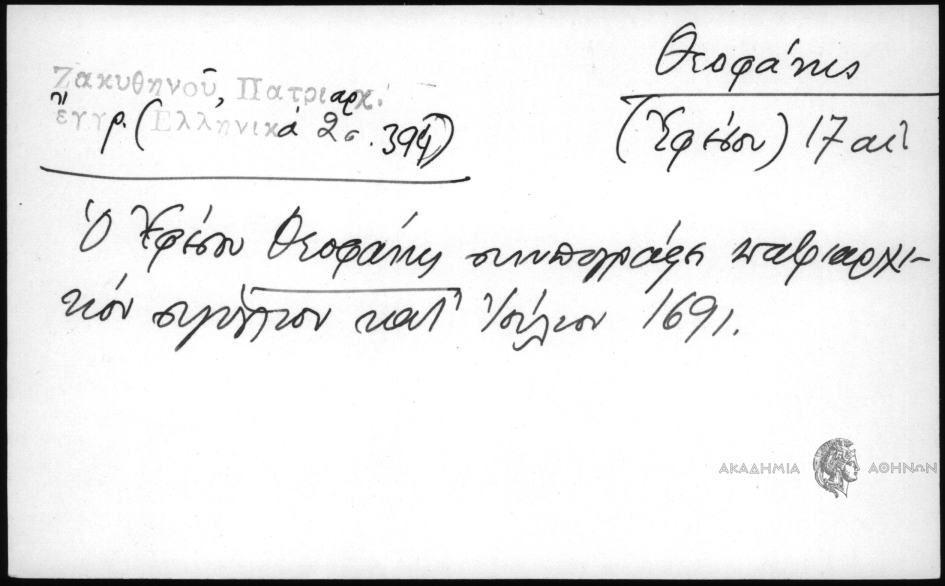 Θεοφάνης
(Ἐφέσου) 17 αἰ
Ζακυθηνοῦ, Πατριαρχ.
ἔγγρ. (Ἑλληνικά 2 σ. 394)
Ὁ Ἐφέσου Θεοφάνης συνυπογράφει πατριαρχι-
κόν σιγίλλιον κατ' Ἰούλιον 1691.
ΑΚΑΔΗΜΙΑ ΑΘΗΝΩΝ